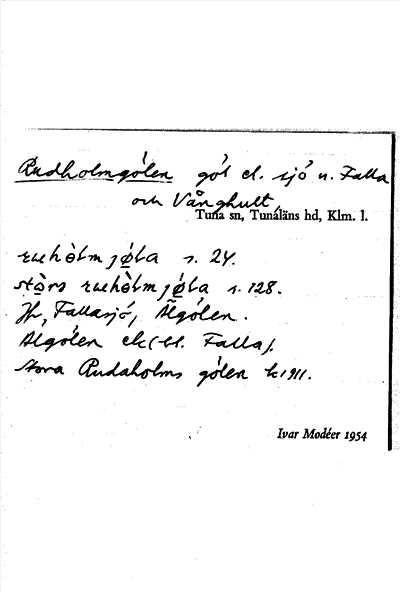 Rudholmgölen göl el. sjö u. Falla
och Vånghult,
Tuna sn, Tunaläns hd, Klm. l.
s. 24.
s. 128.
Jfr, Fallasjö, Älgölen.
Älgölen ek (bl. Falla).
Stora Rudaholms gölen k 1911.
Ivar Modéer 1954